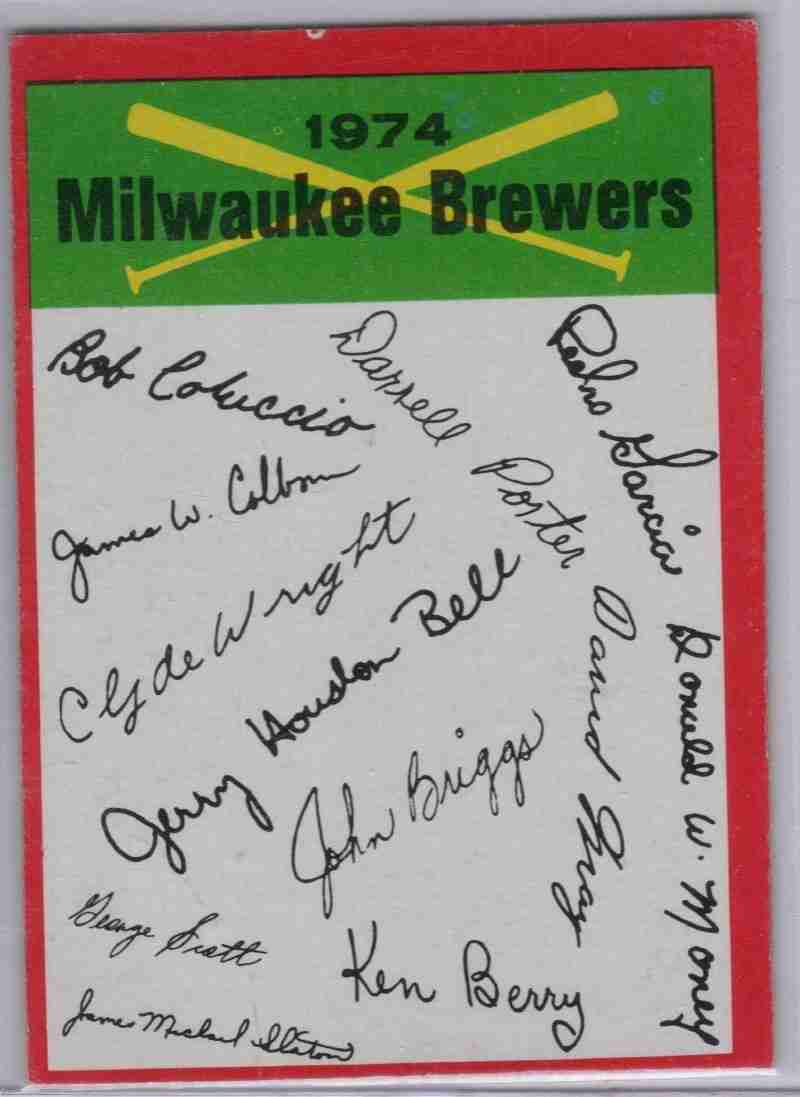 1974
Milwaukee Brewers
Bob Coluccio
Darrell Porter
Pedro Garcia
James W. Colborn
Clyde Wright
Jerry Houston Bell
David May
Donald W. Money
John Briggs
George Scott
Ken Berry
James Michael Slaton